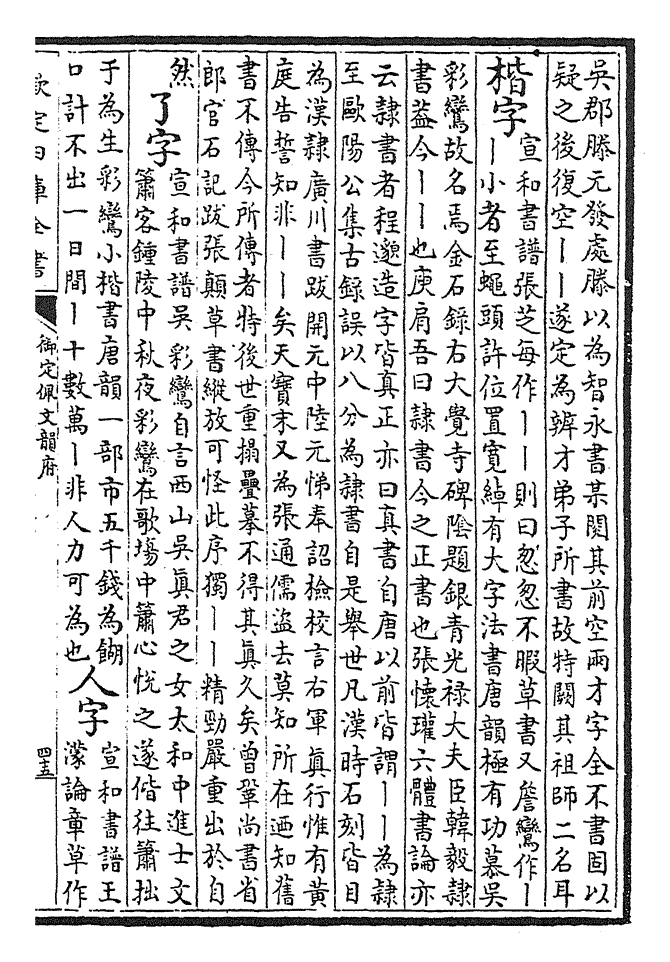 吳郡滕元發處滕以為智永書某閱其前空兩才字全不書固以
疑之後復空丨丨遂定為辨才弟子所書故特闕其祖師二名耳
楷字
宣和書譜張芝每作丨丨則曰怱怱不暇草書又詹鸞作丨
丨小者至蠅頭許位置寬綽有大字法書唐韻極有功慕吳
彩鸞故名焉金石錄右大覺寺碑陰題銀青光祿大夫臣韓毅隸
書葢今丨丨也庾肩吾曰隸書今之正書也張懷瓘六體書論亦
云隸書者程邈造字皆真正亦曰真書自唐以前皆謂丨丨為隸
至歐陽公集古錄誤以八分為隸書自是舉世凡漢時石刻皆目
為漢隸廣川書跋開元中陸元悌奉詔檢校言右軍真行惟有黃
庭告誓知非丨丨矣天寶末又為張通儒盜去莫知所在迺知舊
書不傳今所傳者特後世重搨疊摹不得其真久矣曾鞏尚書省
郎官石記跋張顛草書縱放可怪此序獨丨丨精勁嚴重出於自
然
了字
宣和書譜吳彩鸞自言西山吳真君之女太和中進士文
簫客鍾陵中秋夜彩鸞在歌場中簫心悅之遂偕往簫拙
于為生彩鸞小楷書唐韻一部市五千錢為餬
口計不出一日間丨十數萬丨非人力可為也
人字
宣和書譜王
濛論章草作
欽定四庫全書
御定佩文韻府
四五